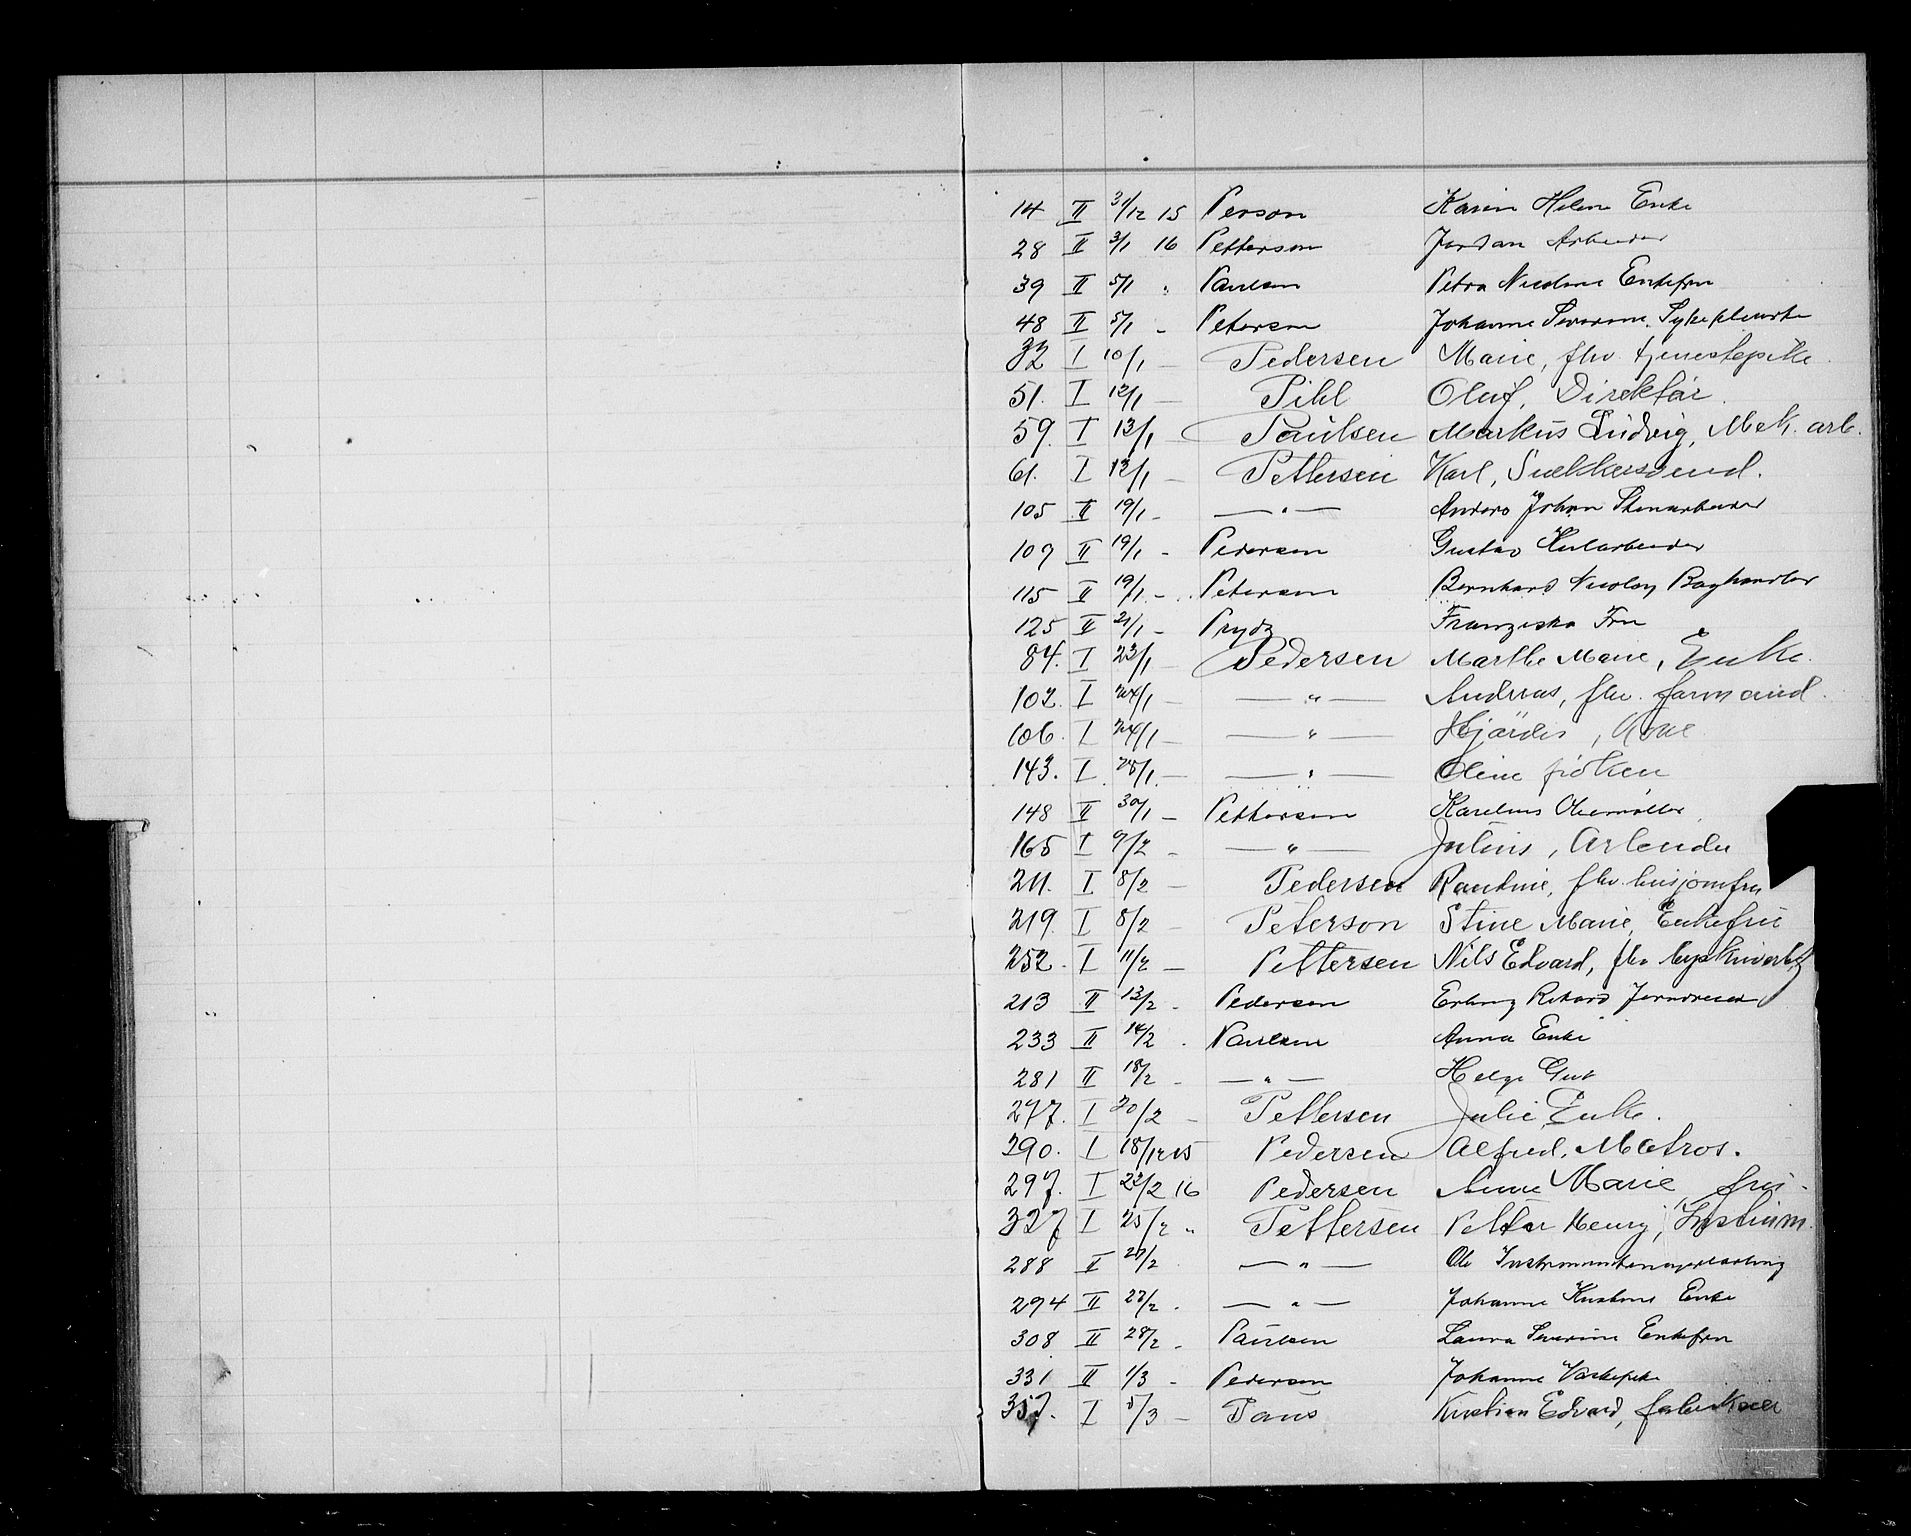 14 II 31/12 15 Person Karen Helene Enke
28 II 3/1 16 Petterson Jordan Arbeider
39 II 5/1 " Paulsen Petra Nicoline Enkefru
48 II 5/1 - Petersen Johanne Severine Sykepleierske
32 I 10/1 - Pedersen Marie, fhv. tjenestepike
51. I 12/1 - Pihl Oluf, Direktør.
59. I 13/1 - Paulsen Markus Ludvig, Mek. arb.
61. I 13/1 - Pettersen Karl, Snekkersvend.
105 II 19/1 - —"— Anders Johan Stenarbeider
107 II 19/1 - Pedersen Gustav
115 II 19/1 - Petersen Bernhard Nicolay Boghandler
125 II 21/1 - Prydz Franziska Fru
84. I 23/1 - Pedersen Marthe Marie, Enke.
102. I 24/1 - —"— Andreas, fhv. formand.
106. I 24/1 - —"— Hjørdis, Kone
143. I 28/1 - —"— Oline frøken
148 II 30/1 - Petterson Karelius
165 I 9/2 - —"— Julius, Arbeider
211. I 8/2 - Pedersen Randine, fhv. husjomfru
219. I 8/2 - Peterson Stine Marie, Enkefru
252. I 11/2 - Pettersen Nils Edvard, fhv
213 II 13/2 - Pedersen Erling Rikard Jerndreier
233 II 14/2 - Paulsen Anna Enke
281 II 18/2 - —"— Helge Gut
277. I 20/2 - Pettersen Julie, Enke.
290. I 18/12 15 Pedersen Alfred, Matros.
297. I 22/2 16 Pedersen Anne Marie, fru.
327 I 25/2 " Pettersen Petter Henry, Instrum.
288 II 27/2 —"— Ole Instrumentmagerlærling
294 II 27/2 - —"— Johanne Kristine Enke
308 II 28/2 - Paulsen Laura Severine Enkefru
331 II 1/3 - Pedersen Johanne Vaskepike
357. I 5/3 - Paus Kristian Edvard, fabrikeier